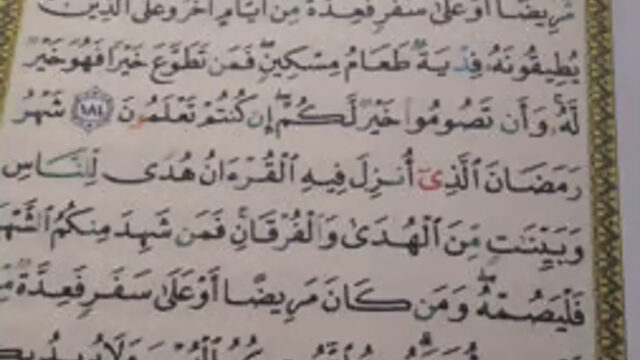 مَّرِيضًا أَوْ عَلَىٰ سَفَرٍ فَعِدَّةٌ مِّنْ أَيَّامٍ أُخَرَ وَعَلَى الَّذِينَ
يُطِيقُونَهُۥ فِدْيَةٌ طَعَامُ مِسْكِينٍ ۖ فَمَن تَطَوَّعَ خَيْرًا فَهُوَ خَيْرٌ
لَّهُۥ ۚ وَأَن تَصُومُوا۟ خَيْرٌ لَّكُمْ ۖ إِن كُنتُمْ تَعْلَمُونَ ١٨٤ شَهْرُ
رَمَضَانَ ٱلَّذِىٓ أُنزِلَ فِيهِ ٱلْقُرْءَانُ هُدًى لِّلنَّاسِ
وَبَيِّنَٰتٍ مِّنَ ٱلْهُدَىٰ وَٱلْفُرْقَانِ ۚ فَمَن شَهِدَ مِنكُمُ
فَلْيَصُمْهُ ۖ وَمَن كَانَ مَرِيضًا أَوْ عَلَىٰ سَفَرٍ فَعِدَّةٌ